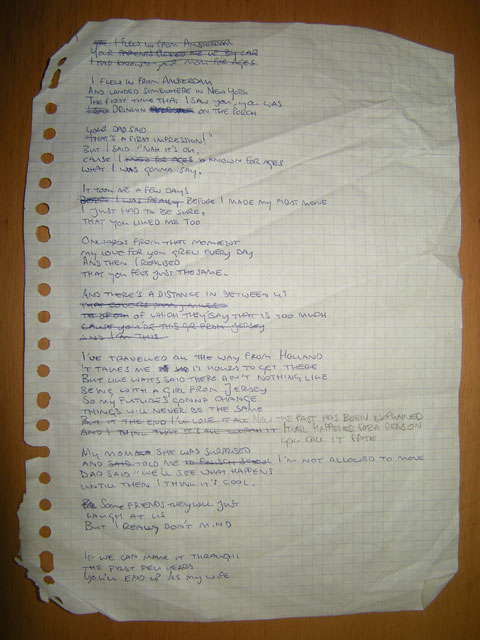 I flew in from Amsterdam
Your parents picked me up by car
I had known your mom for ages
I flew in from Amsterdam
And landed somewhere in New York
The first time that I saw you, you was
drinkin on the porch
Your dad said
"That's a first impression!"
But I said "Nah it's ok,
Cause I known for ages
What I was gonna say.
It took me a few days
I was really before I made my first move
I just had to be sure,
That you liked me too
Onwards from that moment
My love for you grew every day
And then I realised
That you feel just the same.
And there's a distance in between us
That covers many miles
of which they say that is too much
Cause you're this girl from Jersey
And I'm this
I've travelled all the way from Holland
It takes me 17 hours to get there
But like Waits said there ain't nothing like
Being with a girl from Jersey
So my future's gonna change
Things will never be the same
But it the end I'll lose it all No, the past has been explained
And I think that it's all worth it It all happened for a reason
You call it fate
My mom she was surprised
And said told me to finish school I'm not allowed to move
Dad said "We'll see what happens
Until then I think it's cool.
Some friends they will just
Laugh at us
But I really don't mind
If we can make it through
The first few years
You'll end up as my wife